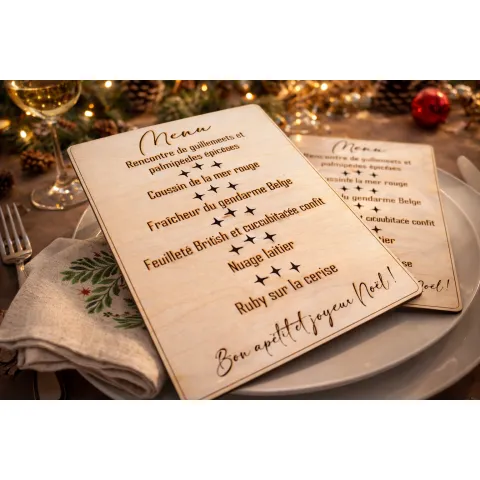 Menu
Rencontre de guillemets et
palmipèdes épicées
Coussin de la mer rouge
Fraîcheur du gendarme Belge
Feuilleté British et cucubitacée confit
Nuage laitier
Ruby sur la cerise
Bon apétit et joyeux Noël !
Menu
Rencontre de guillemets et
palmipèdes épicées
de la mer rouge
gendarme Belge
cucubitacée confit
tier
cerise
Noël !